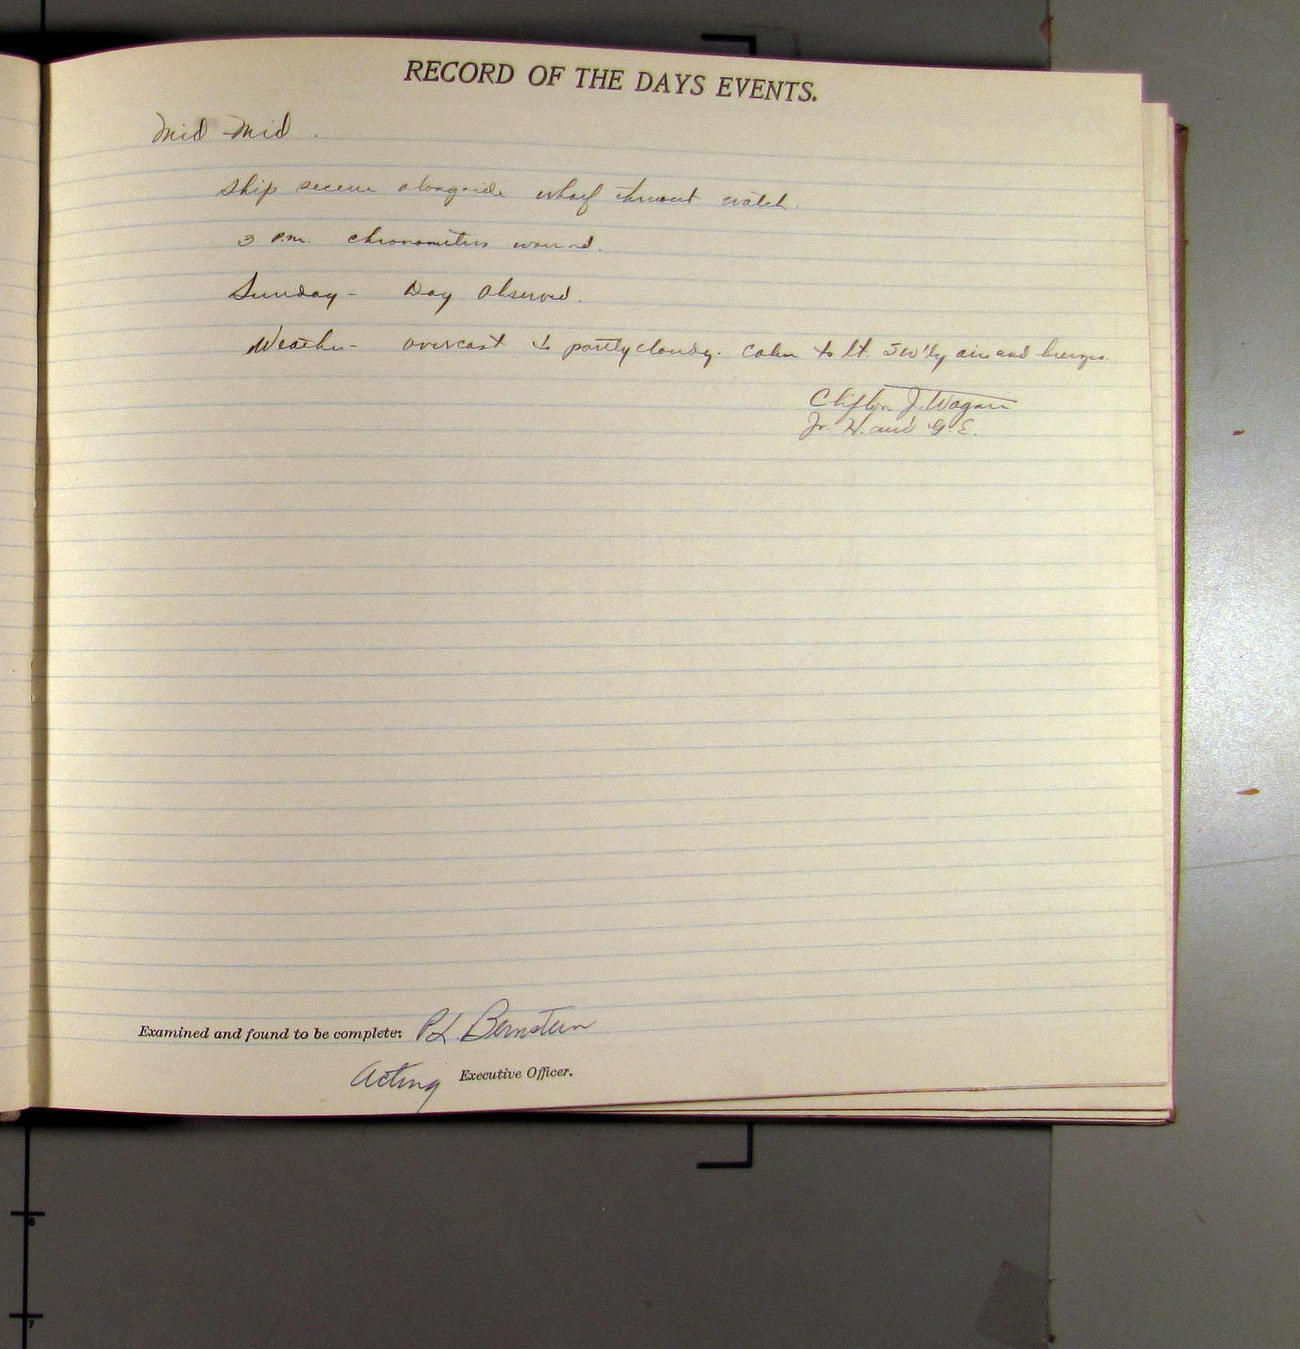 RECORD OF THE DAYS EVENTS.
Mid - Mid.
Ship secure alongside wharf thruout watch.
3 P.M. chronometers wound.
Sunday - Day Observed.
Weather - overcast to partly cloudy. Calm to lt. SW'ly airs and breezes.
Clifton J. Wagner
Jr. H. and G. E.
Examined and found to be complete: P.L. Bernstein
Acting Executive Officer.
6
7